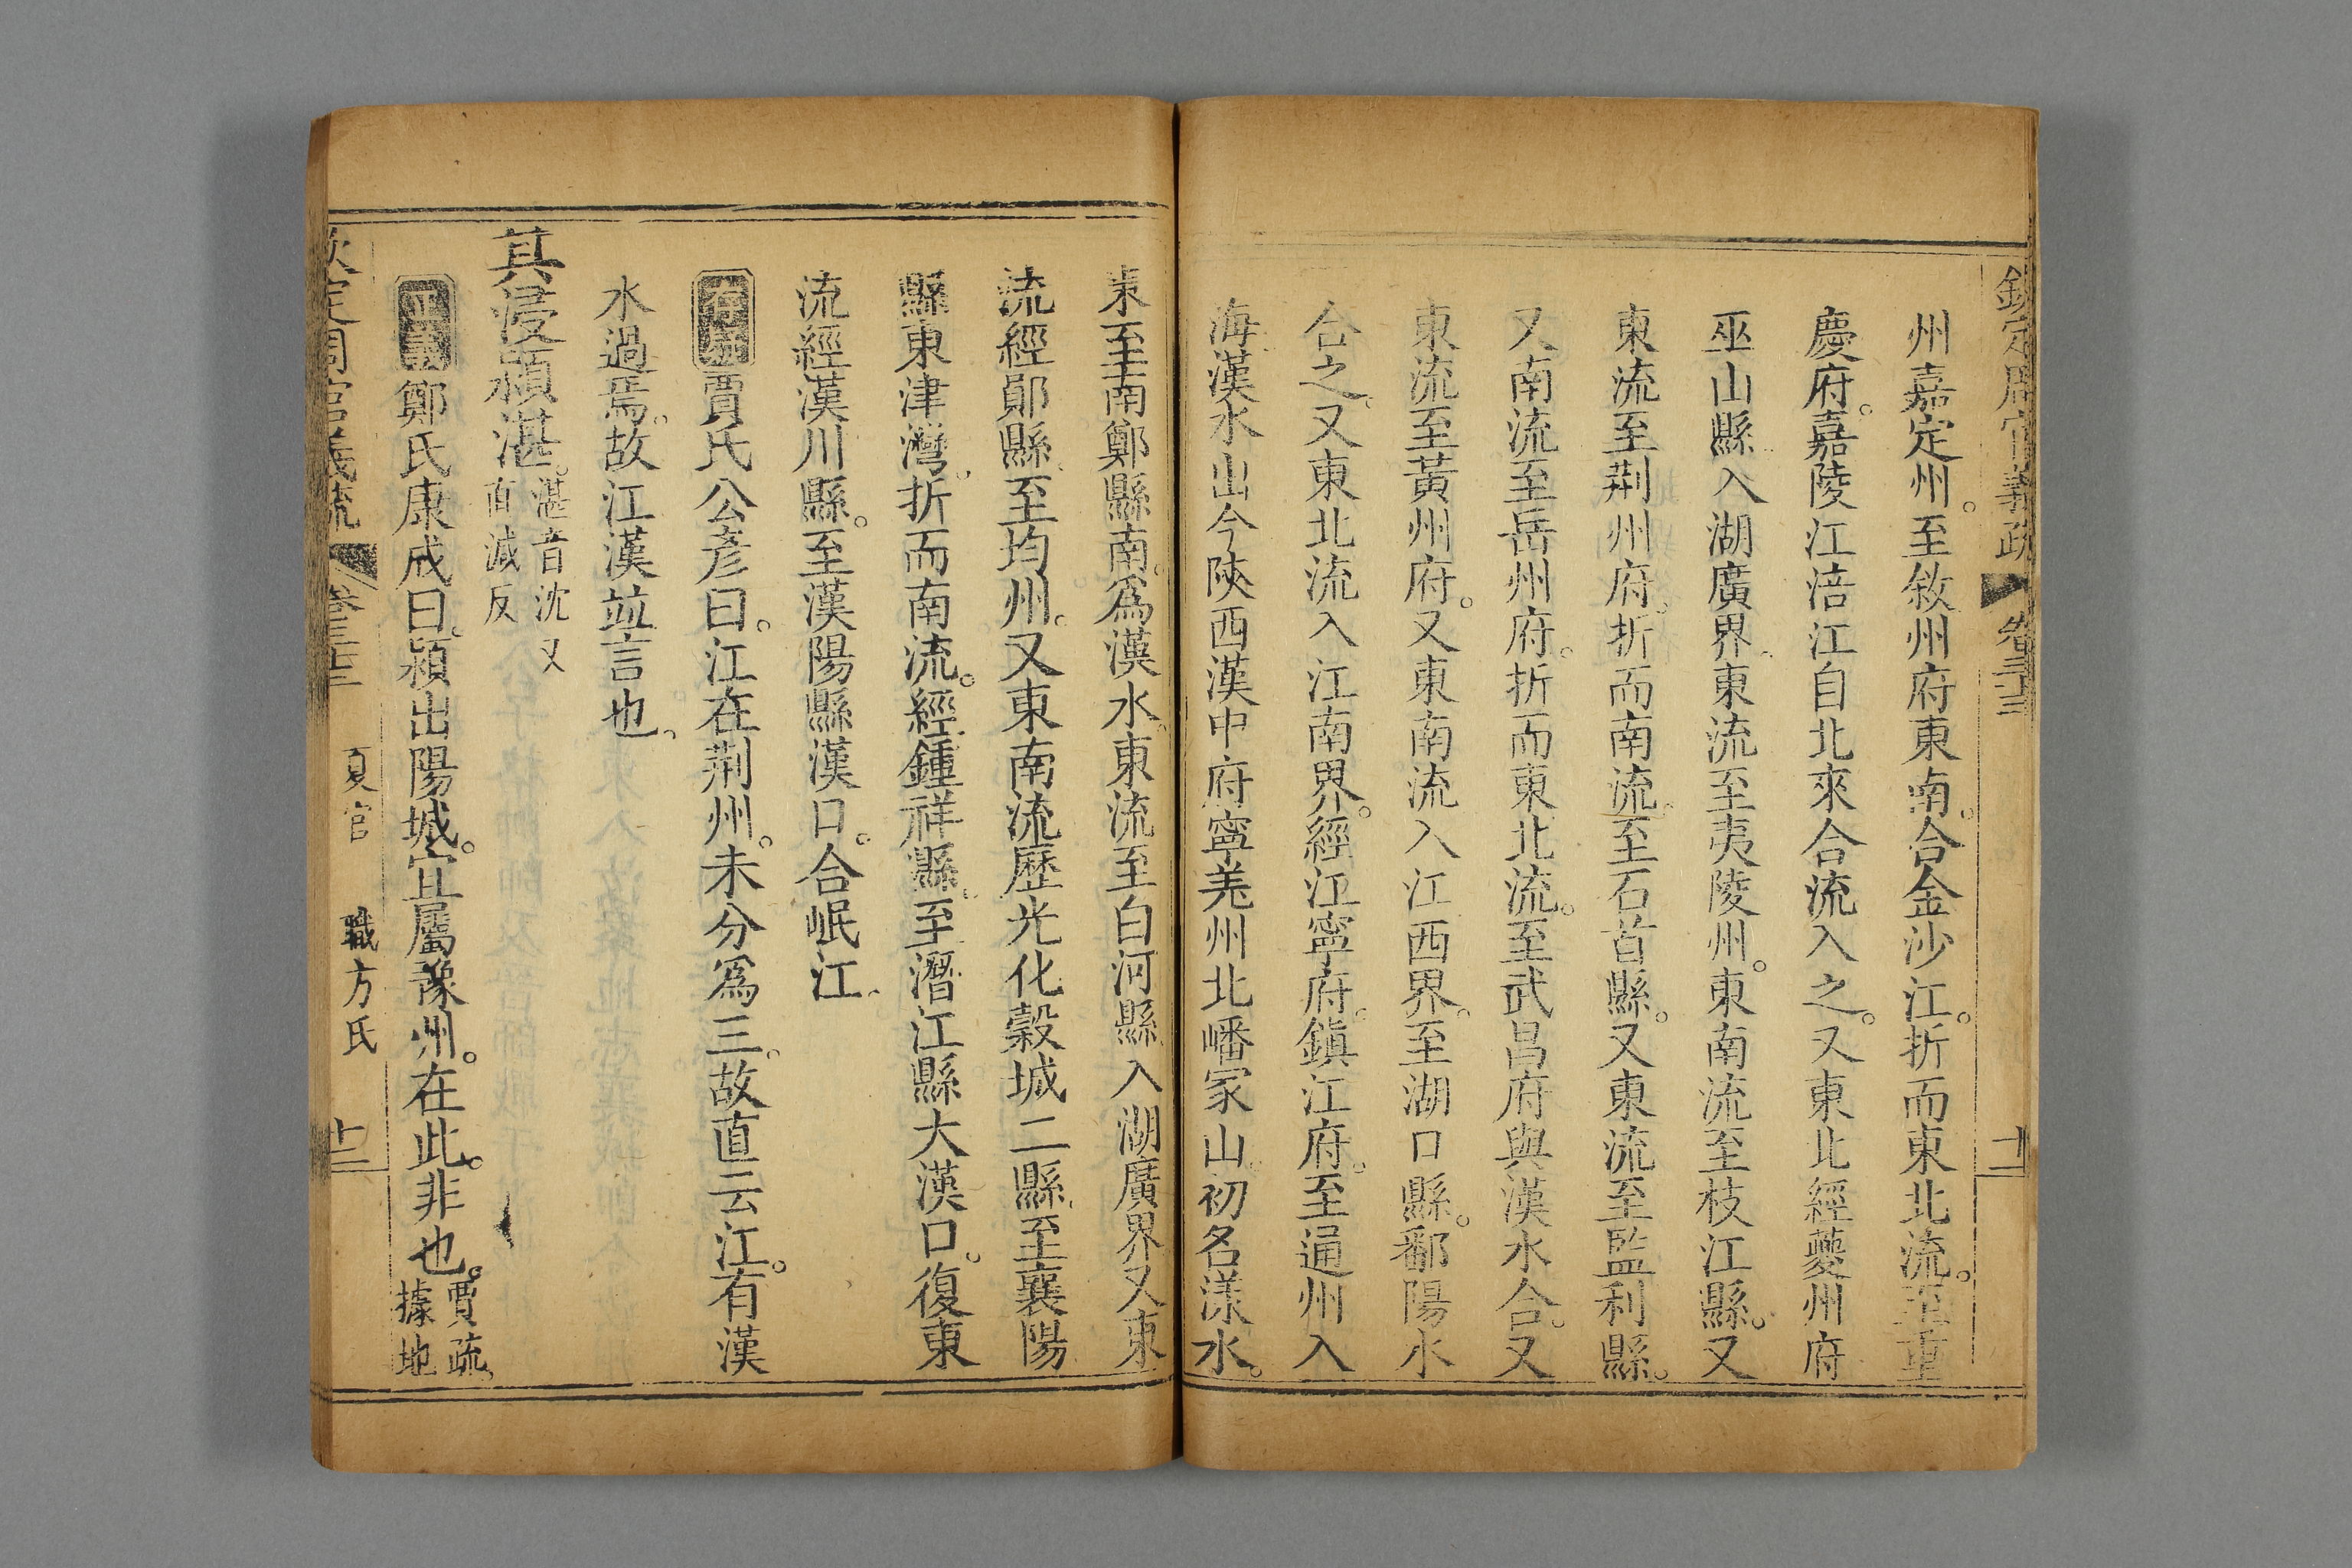 欽定周官義疏 卷三十三 十二
州嘉定州。至敘州府東南。合金沙江。折而東北流。至重
慶府。嘉陵江涪江自北來合流入之。又東北經夔州府
巫山縣入湖廣界。東流至夷陵州。東南流至枝江縣。又
東流至荆州府。折而南流。至石首縣。又東流至監利縣。
又南流至岳州府。折而東北流。至武昌府與漢水合。又
東流至黃州府。又東南流入江西界。至湖口縣。鄱陽水
合之。又東北流入江南界。經江寧府。鎭江府。至通州入
海漢水出今陝西漢中府寧羌州北嶓冢山。初名漾水。
東至南鄭縣南。爲漢水。東流至白河縣入湖廣界又東
流經鄖縣。至均州。又東南流歷光化穀城二縣。至襄陽
縣東津灣。折而南流。經鍾祥縣。至潛江縣大漢口。復東
流經漢川縣。至漢陽縣漢口。合岷江。
存疑 賈氏公彥曰。江在荆州。未分爲三。故直云江。有漢
水過焉。故江漢竝言也。
其浸潁湛。湛音沈又
直減反
正義 鄭氏康成曰。潁出陽城。宜屬豫州。在此。非也。賈疏。
據地
欽定周官義疏 卷三十三 夏官 職方氏 十三